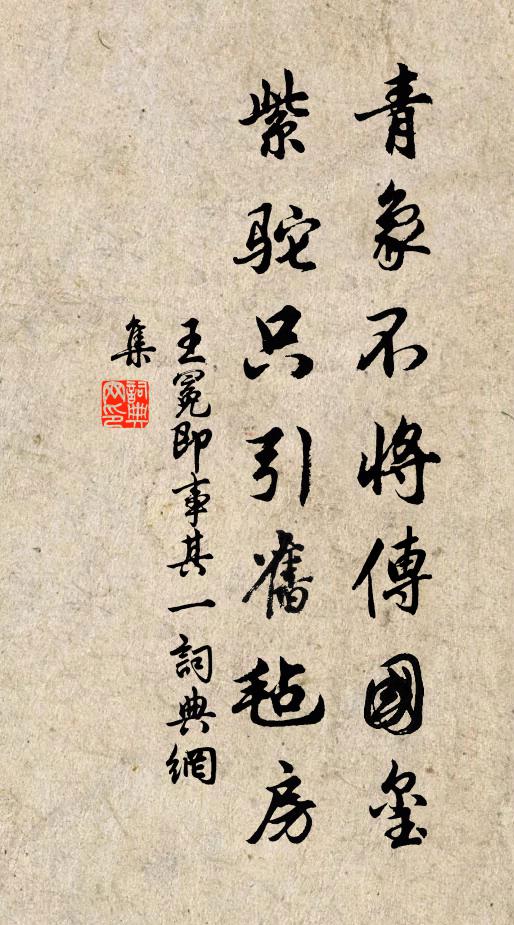 青象不將傳國璽
紫駝只引舊氈房
王冕即事其一詞典網
集
詞典網印